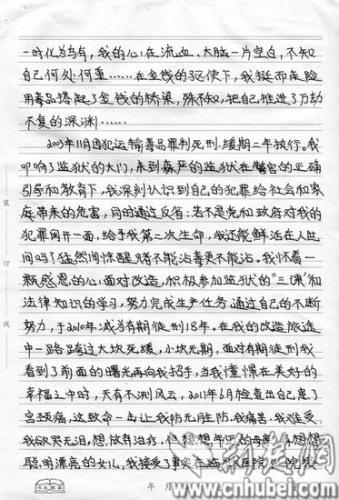 一时化为乌有，我的心在流血、大脑一片空白，不知
自己何处何重……在金钱的驱使下，我铤而走险
用毒品搭起了金钱的桥梁，殊不知，把自己推进了万劫
不复的深渊……
2003年11月因犯运输毒品罪判死刑.缓期二年执行。我
叩响了监狱的大门，来到森严的监狱在警官的正确
引导和教育下，我深刻认识到自己的犯罪给社会和家
庭带来的危害，同时通过反省：若不是党和政府对我的
犯罪网开一面，给予我第二次生命，我还能鲜活在人世
间吗？猛然间惊醒赌不能沾毒更不能沾。我怀着一
颗感恩的心，面对改造，积极参加监狱的“三课”和
法律知识的学习，努力完成生产任务通过自己的不断
努力，于2010年减为有期徒刑18年，在我的改造旅途
中一路跨过大坎死缓，小坎无期，面对有期徒刑我
看到了前面的曙光再向我招手，当我憧憬在美好的
幸福之中时，天有不测风云，2011年6月检查出自己患了
宫颈癌，这致命一击让我防无胜防，我痛苦.我难受.
我欲哭无泪，想放弃治疗，但想想年迈的母亲，想想
聪明漂亮的女儿，我接受了
装
订
线
年 月
新楚网
www.cnhubei.com